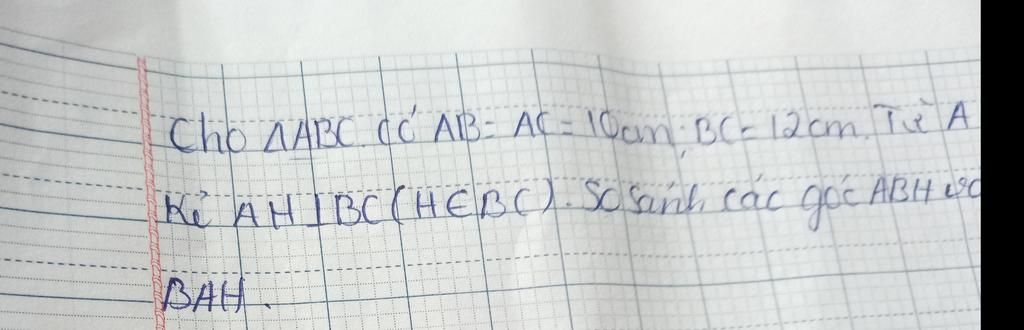 Cho ΔABC có AB = AC = 10cm; BC = 12cm. Từ A
Kẻ AH ⊥ BC (H ∈ BC). So sánh các góc ABH và
BAH.